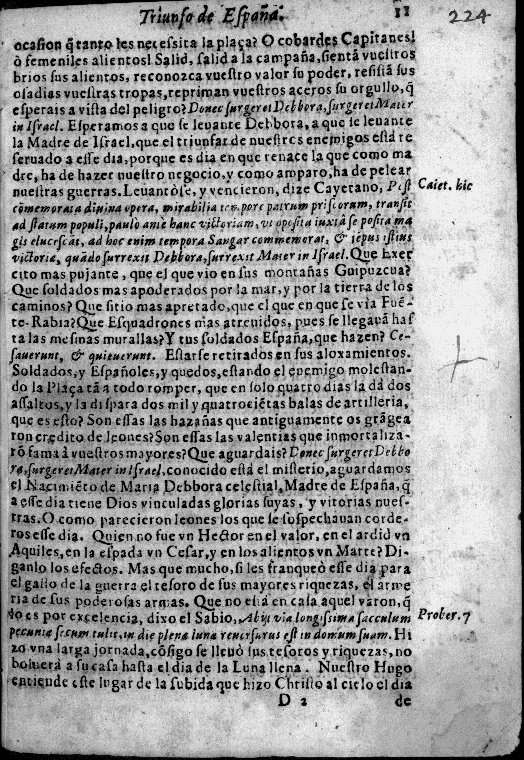 Triunfo de España. 11
224
ocasion q̃ tanto les necessita la plaça? O cobardes Capitanes!
ò femeniles alientos! Salid, salid a la campaña, sientã vuestros
brios sus alientos, reconozca vuestro valor su poder, resistã sus
osadias vuestras tropas, repriman vuestros aceros su orgullo, q̃
esperais a vista del peligro? Donec surgeret Debbora, surgeret Mater
in Israel. Esperamos a que se leuante Debbora, a que se leuante
la Madre de Israel, que el triunfar de nuestros enemigos està re
seruado a esse dia, porque es dia en que renace la que como ma
dre, ha de hazer nuestro negocio, y como amparo, ha de pelear
nuestras guerras. Leuantòse, y vencieron, dize Cayetano, Post
Caiet. hic
cõmemorata diuina opera, mirabilia tempore patrum priscorum, transit
ad statum populi, paulo ante hanc victoriam, vt oposita iuxta se posita ma
gis elucescãt, ad hoc enim tempora Sangar commemorat, & tẽpus istius
victoriæ, quãdo surrexit Debbora, surrexit Mater in Israel. Que Exer
cito mas pujante, que el que vio en sus montañas Guipuzcua?
Que soldados mas apoderados por la mar, y por la tierra de los
caminos? Que sitio mas apretado, que el que en que se via Fuẽ
te-Rabia? Que Esquadrones mas atreuidos, pues se llegauã has
ta las mesinas murallas? Y tus soldados España, que hazen? Ce-
ssauerunt, & quieuerunt. Estarse retirados en sus aloxamientos.
Soldados, y Españoles, y quedos, estando el enemigo molestan-
do la Plaça tã a todo romper, que en solo quatro dias la dà dos
assaltos, y la dispara dos mil y quatrociẽtas balas de artilleria,
que es esto? Son essas las hazañas que antiguamente os grãgea
ron credito de leones? Son essas las valentias que inmortaliza-
rõ fama à vuestros mayores? Que aguardais? Donec surgeret Debbo
ra, surgeret Mater in Israel, conocido està el misterio, aguardamos
el Nacimiẽto de Maria Debbora celestial, Madre de España, q̃
a esse dia tiene Dios vinculadas glorias suyas, y vitorias nues-
tras. O como parecieron leones los que se sospechauan corde-
ros esse dia. Quien no fue vn Hector en el valor, en el ardid vn
Aquiles, en la espada vn Cesar, y en los alientos vn Marte? Di-
ganlo los efectos. Mas que mucho, si les franqueò esse dia para
el gasto de la guerra el tesoro de sus mayores riquezas, el arme
ria de sus poderosas armas. Que no està en casa aquel varon, q̃
lo es por excelencia, dixo el Sabio, Abijt via longissima sacculum
Prober. 7
pecuniæ secum tulit, in die plenæ lunæ reuersurus est in domum suam. Hi
zo vna larga jornada, cõsigo se lleuò sus tesoros y riquezas, no
boluerà a su casa hasta el dia de la Luna llena. Nuestro Hugo
entiende este lugar de la subida que hizo Christo al cielo el dia
D 2 de